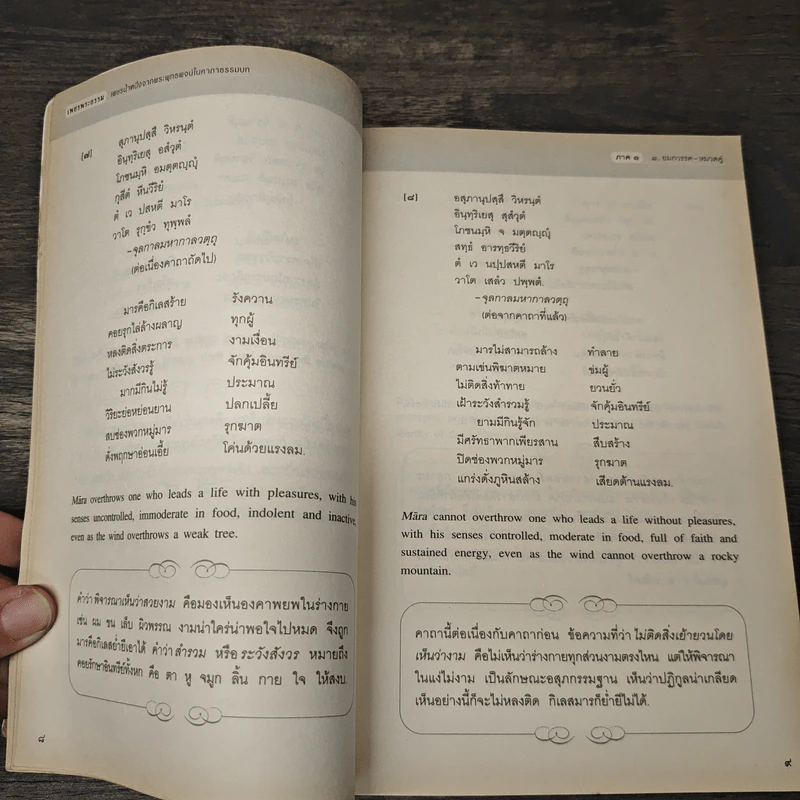 เพชรพระธรรม เพชรน้ำหนึ่งจากพระพุทธพจน์ในคาถาธรรมบท
[๗] สุภานุปสฺสึ วิหรนฺตํ
อินฺทฺริเยสุ อสํวุตํ
โภชนมฺหิ อมตฺตญฺญุํ
กุสีตํ หีนวีริยํ
ตํ เว ปสหตี มาโร
วาโต รุกฺขํว ทุพฺพลํ
–จุลกาลมหากาลวตฺถุ
(ต่อเนื่องคาถาถัดไป)
มารคือกิเลสร้าย รังควาน
คอยรุกไล่ล้างผลาญ ทุกผู้
หลงติดสิ่งตระการ งามเงื่อน
ไม่ระวังสังวรรู้ จักคุ้มอินทรีย์
มากมีกินไม่รู้ ประมาณ
วิริยะย่อหย่อนยาน ปลกเปลี้ย
สบช่องพวกหมู่มาร รุกฆาต
ดั่งพฤกษาอ่อนเอี้ย โค่นด้วยแรงลม.
Māra overthrows one who leads a life with pleasures, with his
senses uncontrolled, immoderate in food, indolent and inactive,
even as the wind overthrows a weak tree.
คำว่า พิจารณาเห็นว่าสวยงาม คือมองเห็นองคาพยพในร่างกาย
เช่น ผม ขน เล็บ ผิวพรรณ งามน่าใคร่น่าพอใจไปหมด จึงถูก
มารคือกิเลสย่ำยีเอาได้ คำว่า สำรวม หรือ ระวังสังวร หมายถึง
คอยรักษาอินทรีย์ทั้งหก คือ ตา หู จมูก ลิ้น กาย ใจ ให้สงบ.
๘
ภาค ๑ ๑. ยมกวรรค–หมวดคู่
[๘] อสุภานุปสฺสึ วิหรนฺตํ
อินฺทฺริเยสุ สุสํวุตํ
โภชนมฺหิ จ มตฺตญฺญุํ
สทฺธํ อารทฺธวีริยํ
ตํ เว นปฺปสหตี มาโร
วาโต เสลํว ปพฺพตํ.
–จุลกาลมหากาลวตฺถุ
(ต่อจากคาถาที่แล้ว)
มารไม่สามารถล้าง ทำลาย
ตามเข่นพิฆาตหมาย ข่มผู้
ไม่ติดสิ่งท้าทาย ยวนยั่ว
เฝ้าระวังสำรวมรู้ จักคุ้มอินทรีย์
ยามมีกินรู้จัก ประมาณ
มีศรัทธาพากเพียรสาน สืบสร้าง
ปิดช่องพวกหมู่มาร รุกฆาต
แกร่งดั่งภูหินสล้าง เสียดต้านแรงลม.
Māra cannot overthrow one who leads a life without pleasures,
with his senses controlled, moderate in food, full of faith and
sustained energy, even as the wind cannot overthrow a rocky
mountain.
คาถานี้ต่อเนื่องกับคาถาก่อน ข้อความที่ว่า ไม่ติดสิ่งเย้ายวนโดย
เห็นว่างาม คือไม่เห็นว่าร่างกายทุกส่วนงามตรงไหน แต่ให้พิจารณา
ในแง่ไม่งาม เป็นลักษณะอสุภกรรมฐาน เห็นว่าปฏิกูลน่าเกลียด
เห็นอย่างนี้ก็จะไม่หลงติด กิเลสมารก็ย่ำยีไม่ได้.
๙